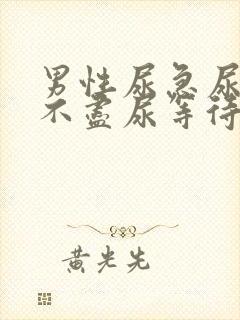 男性尿急尿
不盡尿等待
黄光先